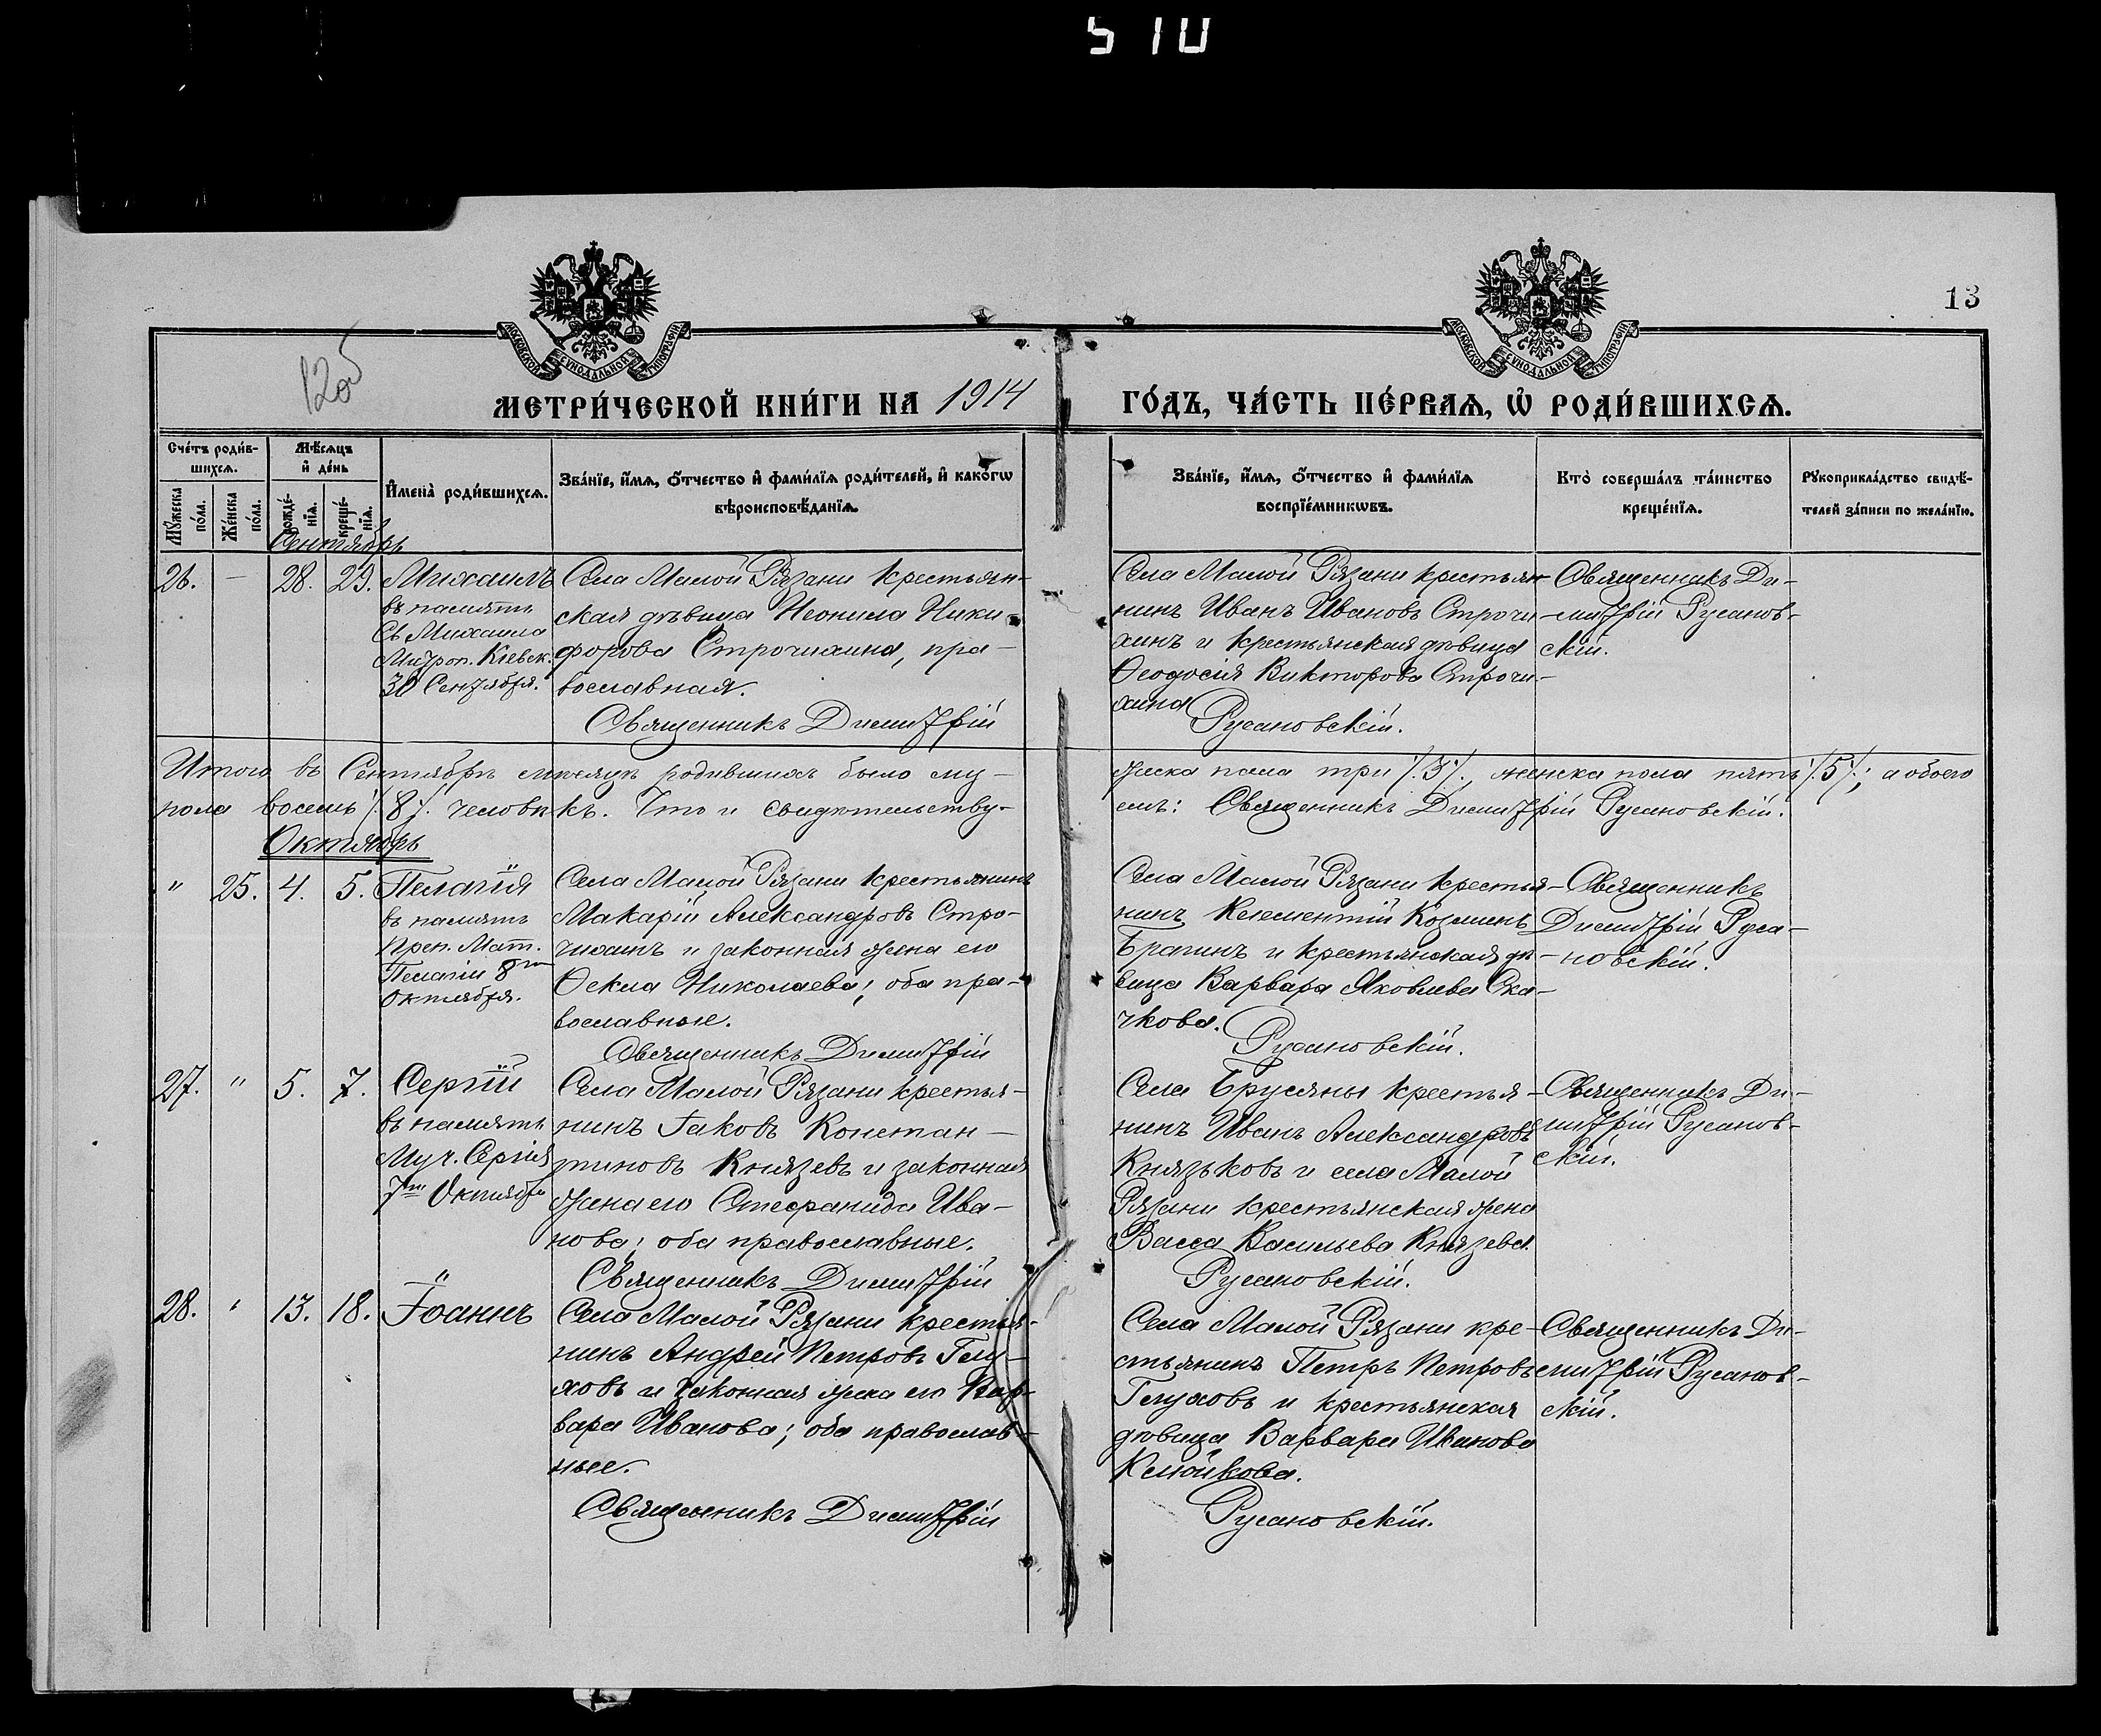 S 10
13
12об
МОСКОВСКОЙ СѴНОДАЛЬНОЙ ТИПОГРАФІИ
МОСКОВСКОЙ СѴНОДАЛЬНОЙ ТИПОГРАФІИ
МЕТРИ́ЧЕСКОЙ КНИ́ГИ НА 1914 ГО́ДЪ, ЧА́СТЬ ПЕ́РВАѦ, Ѡ҆ РОДИ́ВШИХСѦ.
Сче́тъ роди́в-
шихсѧ.
Мꙋ́жеска по́ла.
Же́нска по́ла.
Мѣ́сѧцъ
и҆ де́нь
рожде́-нїѧ.
креще́-нїѧ.
И҆мена̀ роди́вшихсѧ.
Зва́нїе, и҆́мѧ, ѻ҆́тчество и҆ фами́лїѧ роди́телей, и҆ како́гѡ
вѣроисповѣ́данїѧ.
Зва́нїе, и҆́мѧ, ѻ҆́тчество и҆ фами́лїѧ
воспрїе́мникѡвъ.
Кто̀ соверша́лъ та́инство
креще́нїѧ.
Рꙋкоприкла́дство свидѣ́-
телей за́писи по жела́нїю.
Сентябрь
26. — 28. 29. Михаилъ
въ память
Св Михаила
Митроп. Кіевск.
30 Сентября.
Села Малой Рязани крестьян-
ская дѣвица Неонила Ники-
форова Строчихина, пра-
вославная.
Священникъ Димитрій
Села Малой Рязани крестьян-
нинъ Иванъ Ивановъ Строчи-
хинъ и крестьянская дѣвица
Ѳеодосія Викторова Строчи-
хина
Русановскій.
Священникъ Ди-
митрій Русанов-
скій.
Итого въ Сентябрѣ мѣсяцѣ родившихся было му- жеска пола три /.3/., женска пола пять /.5/.; а обоего
пола восемь /.8/. человѣкъ. Что и свидѣтельству- емъ: Священникъ Димитрій Русановскій.
Октябрь
" 25. 4. 5. Пелагія
въ память
Преп. Мат.
Пелагіи 8го
Октября.
Села Малой Рязани крестьянинъ
Макарій Александровъ Стро-
чихинъ и законная жена его
Ѳекла Николаева; оба пра-
вославные.
Священникъ Димитрій
Села Малой Рязани крестья-
нинъ Клементій Козминъ
Брагинъ и крестьянская дѣ-
вица Варвара Яковлева Ска-
чкова.
Русановскій.
Священникъ
Димитрій Руса-
новскій.
27. " 5. 7. Сергій
въ память
Муч. Сергія
7го Октября
Села Малой Рязани крестья-
нинъ Іаковъ Констан-
тиновъ Князевъ и законная
жена его Стефанида Ива-
нова; оба православные.
Священникъ Димитрій
Села Брусяны крестья-
нинъ Иванъ Александровъ
Князьковъ и села Малой
Рязани крестьянская жена
Васса Васильева Князева.
Русановскій.
Священникъ Ди-
митрій Русанов-
скій.
28. " 13. 18. Іоаннъ
Села Малой Рязани крестья-
нинъ Андрей Петровъ Глу-
ховъ и законная жена его Вар-
вара Иванова; оба православ-
ные.
Священникъ Димитрій
Села Малой Рязани кре-
стьянинъ Петръ Петровъ
Глуховъ и крестьянская
дѣвица Варвара Иванова
Клюйкова.
Русановскій.
Священникъ Ди-
митрій Русанов-
скій.